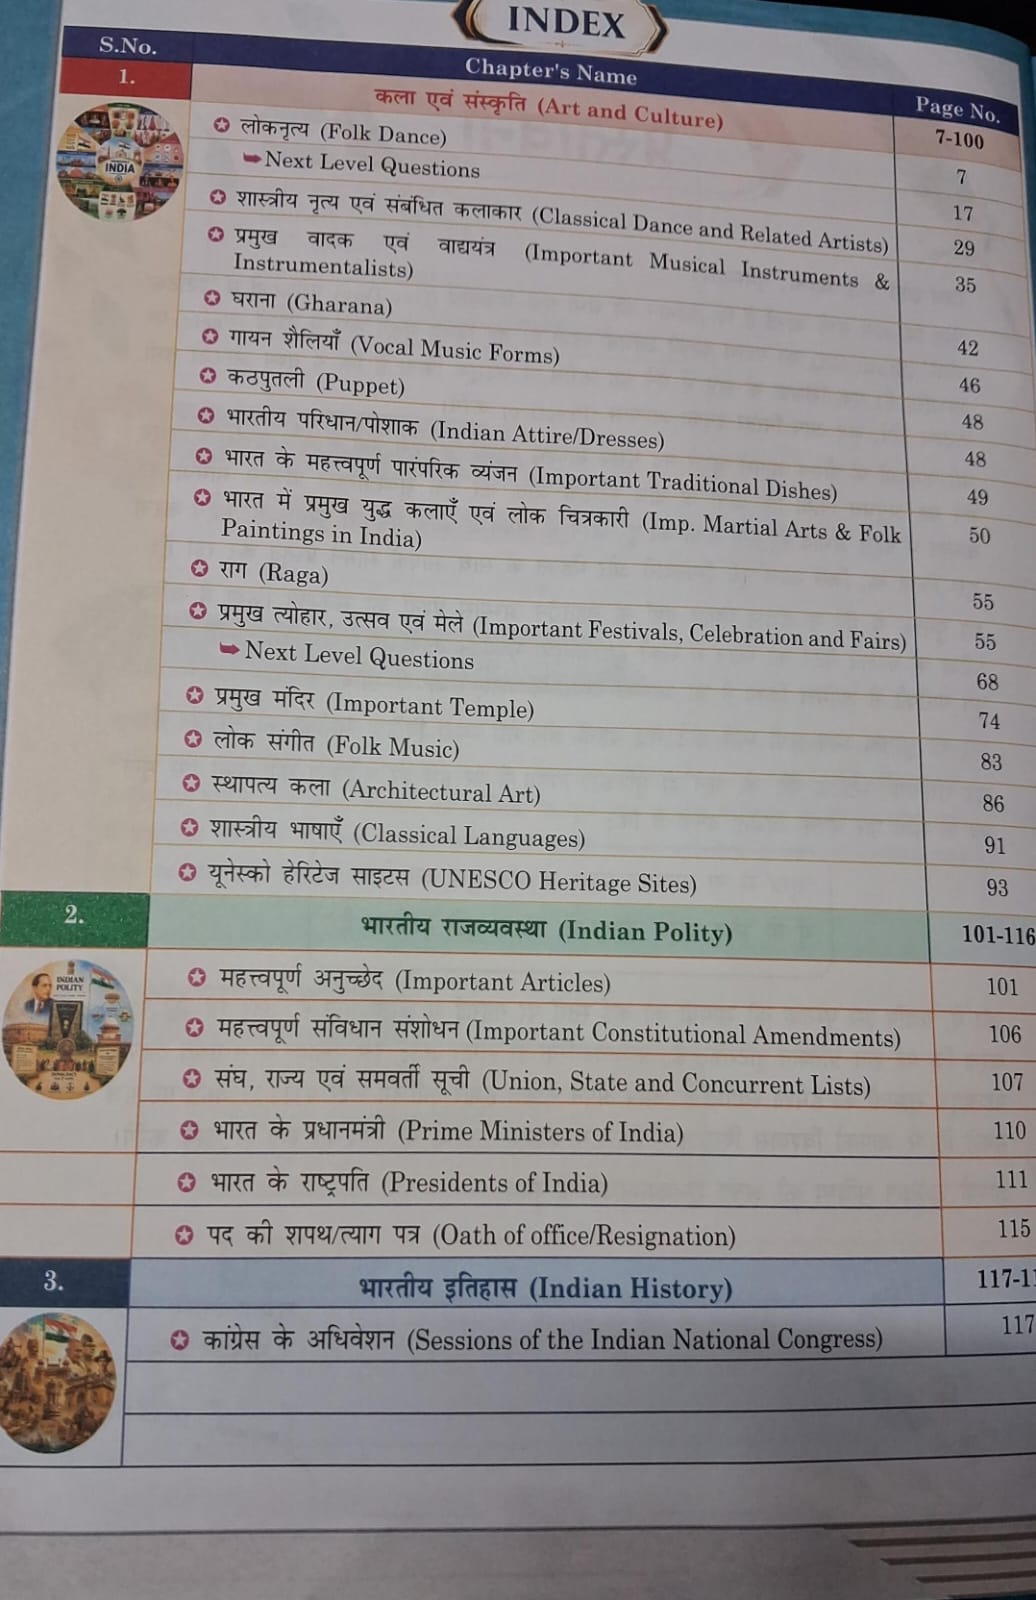 INDEX
S.No. Chapter's Name Page No.
1. कला एवं संस्कृति (Art and Culture) 7-100
लोकनृत्य (Folk Dance) 7
Next Level Questions 17
शास्त्रीय नृत्य एवं संबंधित कलाकार (Classical Dance and Related Artists) 29
प्रमुख वादक एवं वाद्ययंत्र (Important Musical Instruments & 35
Instrumentalists)
घराना (Gharana) 42
गायन शैलियाँ (Vocal Music Forms) 46
कठपुतली (Puppet) 48
भारतीय परिधान/पोशाक (Indian Attire/Dresses) 48
भारत के महत्त्वपूर्ण पारंपरिक व्यंजन (Important Traditional Dishes) 49
भारत में प्रमुख युद्ध कलाएँ एवं लोक चित्रकारी (Imp. Martial Arts & Folk 50
Paintings in India)
राग (Raga) 55
प्रमुख त्योहार, उत्सव एवं मेले (Important Festivals, Celebration and Fairs) 55
Next Level Questions 68
प्रमुख मंदिर (Important Temple) 74
लोक संगीत (Folk Music) 83
स्थापत्य कला (Architectural Art) 86
शास्त्रीय भाषाएँ (Classical Languages) 91
यूनेस्को हेरिटेज साइटस (UNESCO Heritage Sites) 93
INDIA
2. भारतीय राजव्यवस्था (Indian Polity) 101-116
महत्त्वपूर्ण अनुच्छेद (Important Articles) 101
महत्त्वपूर्ण संविधान संशोधन (Important Constitutional Amendments) 106
संघ, राज्य एवं समवर्ती सूची (Union, State and Concurrent Lists) 107
भारत के प्रधानमंत्री (Prime Ministers of India) 110
भारत के राष्ट्रपति (Presidents of India) 111
पद की शपथ/त्याग पत्र (Oath of office/Resignation) 115
INDIAN
POLITY
3. भारतीय इतिहास (Indian History) 117-11
कांग्रेस के अधिवेशन (Sessions of the Indian National Congress) 117